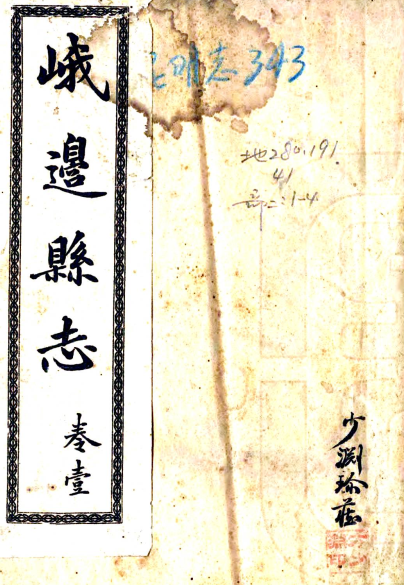 峨邊縣志
卷壹
志343
地280.191
41
1-4
少渊珍藏